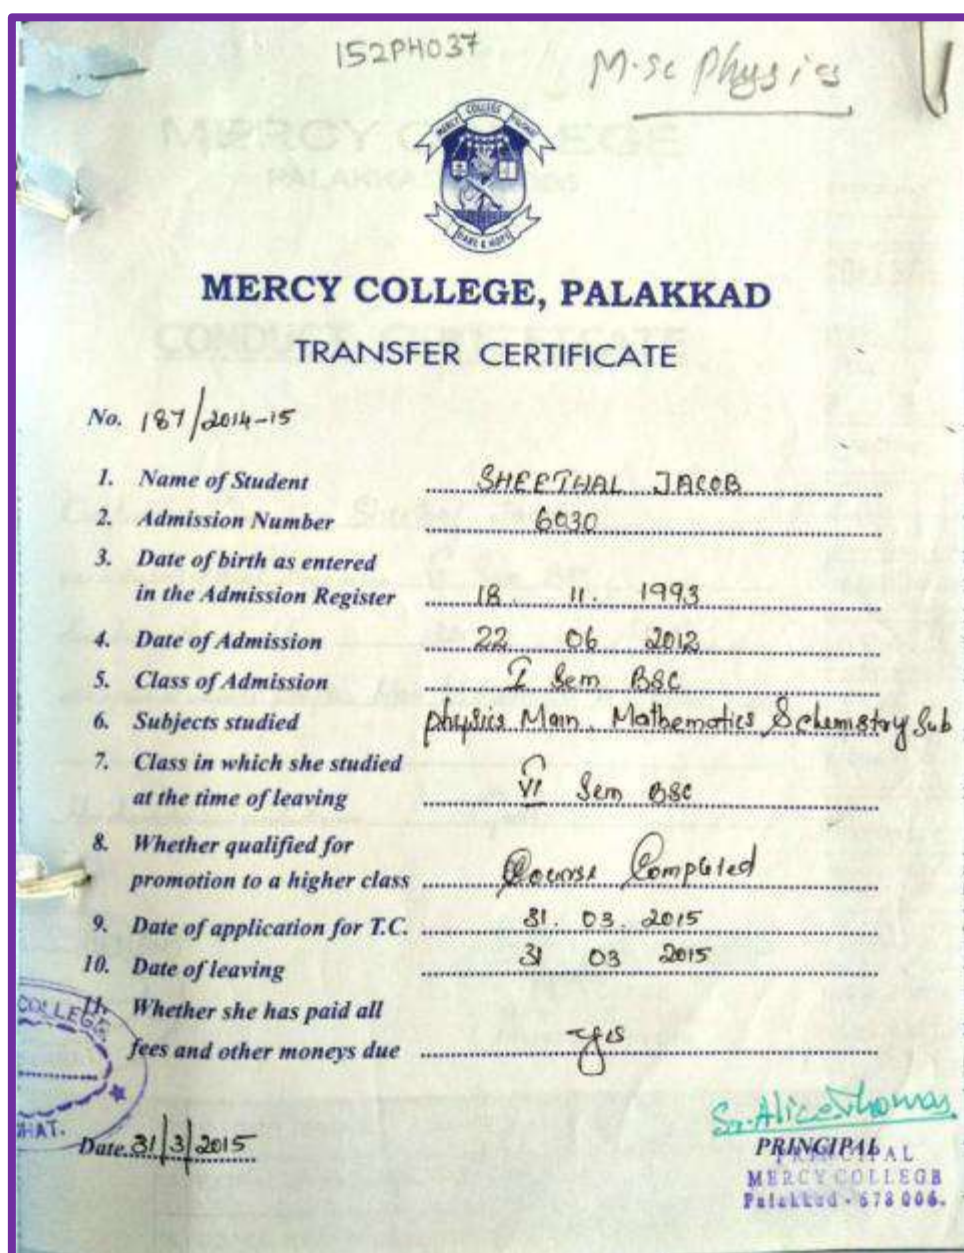 152PH037
M.Sc Physics
MERCY COLLEGE
DARE & HOPE
MERCY COLLEGE, PALAKKAD
TRANSFER CERTIFICATE
No. 187/2014-15
1. Name of Student SHEETHAL JACOB
2. Admission Number 6030
3. Date of birth as entered
in the Admission Register 18. 11. 1993
4. Date of Admission 22 06 2012
5. Class of Admission I Sem BSC
6. Subjects studied physics Main, Mathematics & chemistry Sub
7. Class in which she studied
at the time of leaving VI Sem BSC
8. Whether qualified for
promotion to a higher class Course Completed
9. Date of application for T.C. 31. 03. 2015
10. Date of leaving 31 03 2015
11. Whether she has paid all
fees and other moneys due yes
COLLEGE
HAT.
Date 31/3/2015
Sr. Alice Thomas
PRINCIPAL
PRINCIPAL
MERCY COLLEGE
Palakkad - 678 006.